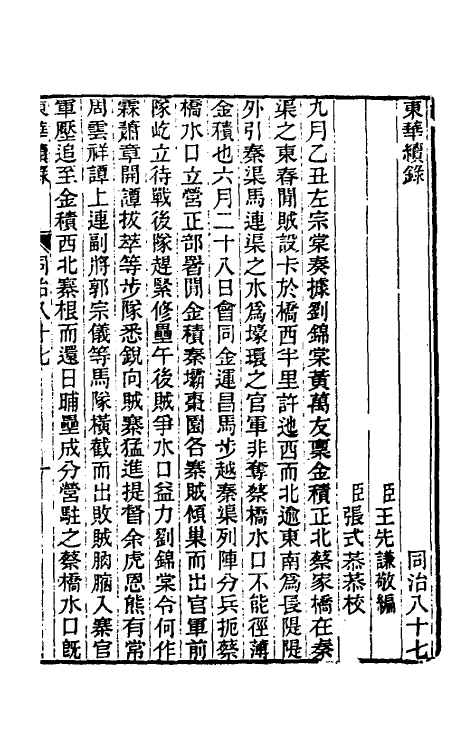 東華續錄　同治八十七
臣王先謙敬編
臣張式恭恭校
九月乙丑左宗棠奏據劉錦棠黃萬友稟金積正北蔡家橋在秦
渠之東舂聞賊設卡於橋西半里許迤西而北逾東南為長隄隄
外引秦渠馬連渠之水為壕環之官軍非奪蔡橋水口不能徑薄
金積也六月二十八日會同金運昌馬步越秦渠列陣分兵扼蔡
橋水口立營正部署閒金積秦壩棗園各寨賊傾巢而出官軍前
隊屹立待戰後隊趕緊修壘午後賊爭水口益力劉錦棠令何作
霖蕭章開譚拔萃等步隊悉銳向賊寨猛進提督余虎恩熊有常
周雲祥譚上連副將郭宗儀等馬隊橫截而出敗賊朒𦠆入寨官
軍壓追至金積西北寨根而還日晡壘成分營駐之蔡橋水口既
東華續錄　同治八十七　一